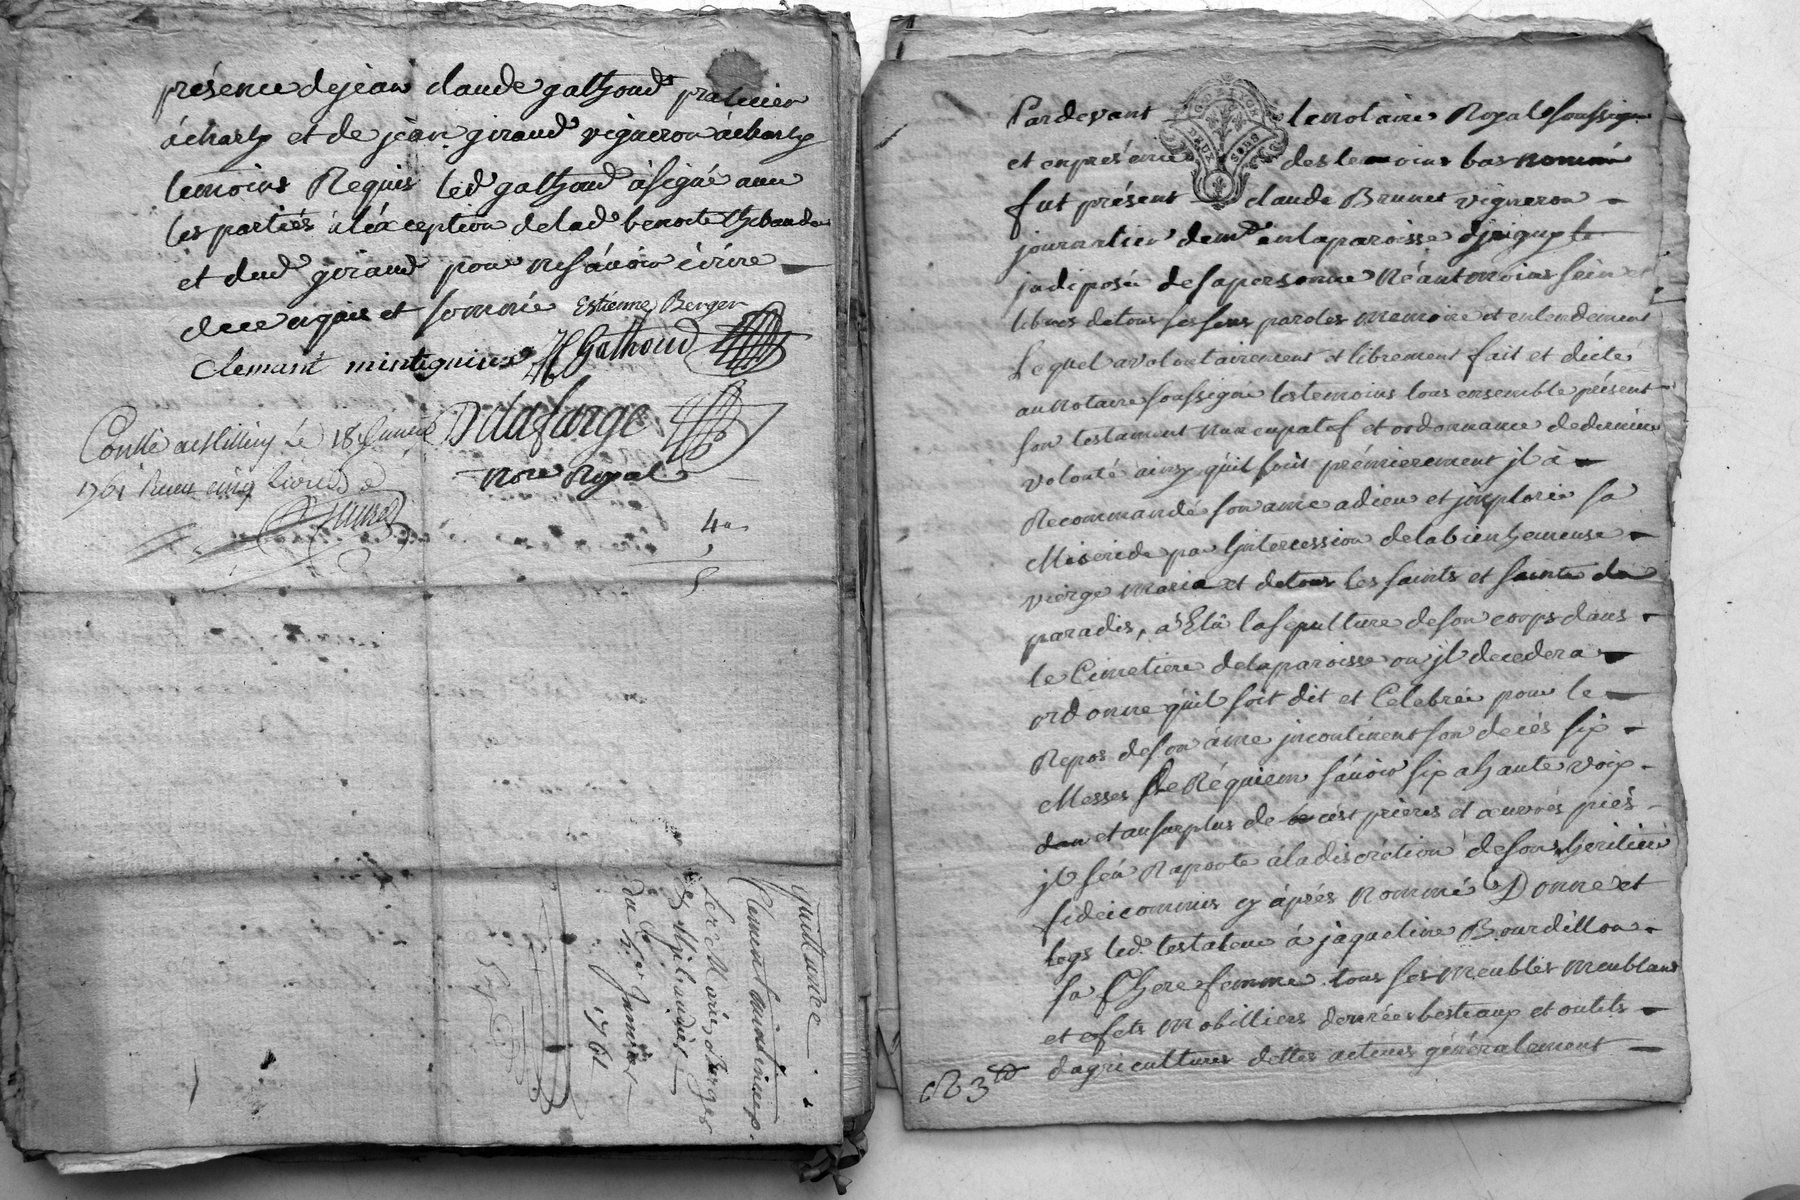 présence de jean claude gathoud praticien
à charly et de jean giraud vigneron à charly
temoins Requis led. gathoud à signé avec
les partiés à l'éxception de lad. benoite thibaudier
et dud. giraud pour ne sçàvoir écrire
de ce enquis et sommé Estienne Berger
Clemant JC Gathoud
Delafarge
nore Royal
Conllé à Millery le 18 janvier
1761 Receu cinq
4
5
quittance
Clement
Marie
thibaudier
du janvier
1761
Pardevant le notaire Royal soussigné
GEN DE LYON
DEUX SOLS
et en présence des temoins bas nommé
fut présent claude Brunet vigneron
journalier demt. en la paroisse d'jrigny le
jndiposé de sa personne Néantmoins sein et
libres de tous ses sens paroles memoire et entendement
Lequel a volontairement et librement fait et dicté
au notaire soussigné les temoins tous ensemble présent
son testament nuncupatif et ordonnance de derniere
volonté ainsy qu'il suit prémierement jl à
Recommandé son ame a dieu et jmplorée sa
Misericde par l'intercession de la bienheureuse
vierge maria et de tous les saints et sainte du
paradis, à Elû la sépulture de son corps dans
le Cimetiere de la paroisse ou jl decedera
ordonne qu'il soit dit et Celebrée pour le
Repos de son àme jncontinent son decés six
Messes de Réquiem sçàvoir six a haute voix
et au surplus de cést priéres et œuvrés piés
jl s'en Raporte à la discrétion de son heritier
fideicommis cy àprés nommé Donne et
legs led. testateur à jàqueline Bourdillon
sa Chere femme tous ses Meubles meublans
et éfets mobilliers denrées bestiaux et outils
d'agricultures dettes actives généralement